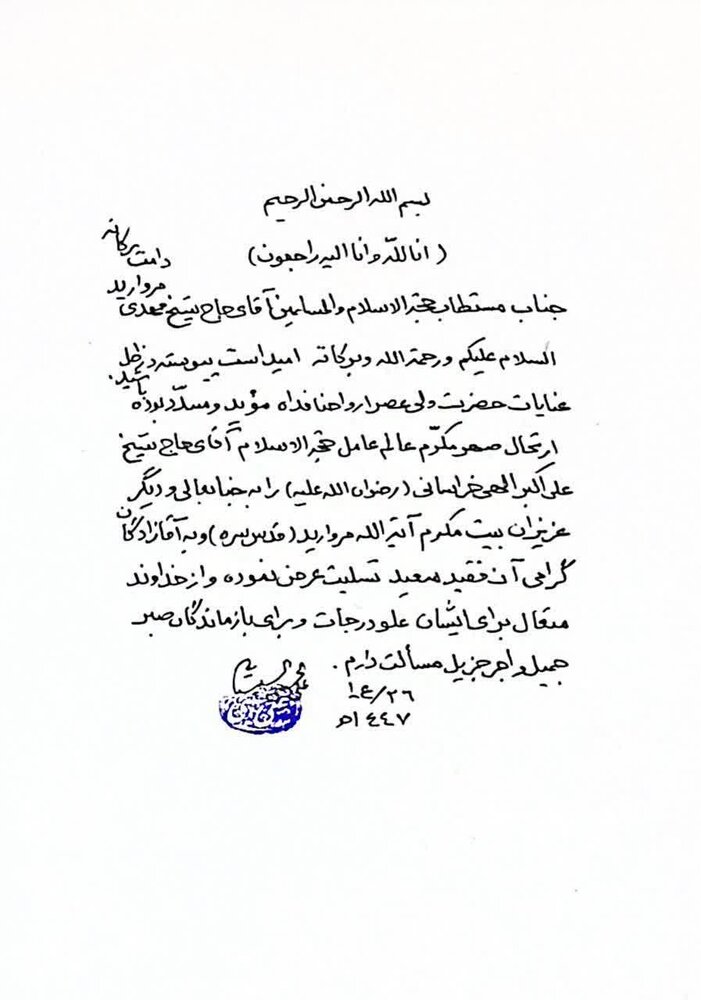 بسم الله الرحمن الرحیم
(انا لله وانا الیه راجعون)
جناب مستطاب حجة الاسلام والمسلمین آقای حاج شیخ مهدی مروارید دامت برکاته
السلام علیکم ورحمة الله وبرکاته امید است پیوسته در ظل
عنایات حضرت ولی عصر ارواحنا فداه مؤید و مسدّد بوده باشید.
ارتحال صهر مکرّم عالم عامل حجة الاسلام آقای حاج شیخ
علی اکبر الهی خراسانی (رضوان الله علیه) را به جنابعالی و دیگر
عزیزان بیت مکرم آیة الله مروارید (قدس سره) و به آقازادگان
گرامی آن فقید سعید تسلیت عرض نموده و از خداوند
متعال برای ایشان علو درجات و برای بازماندگان صبر
جمیل و اجر جزیل مسألت دارم.
٢٦/ع١
١٤٤٧ه